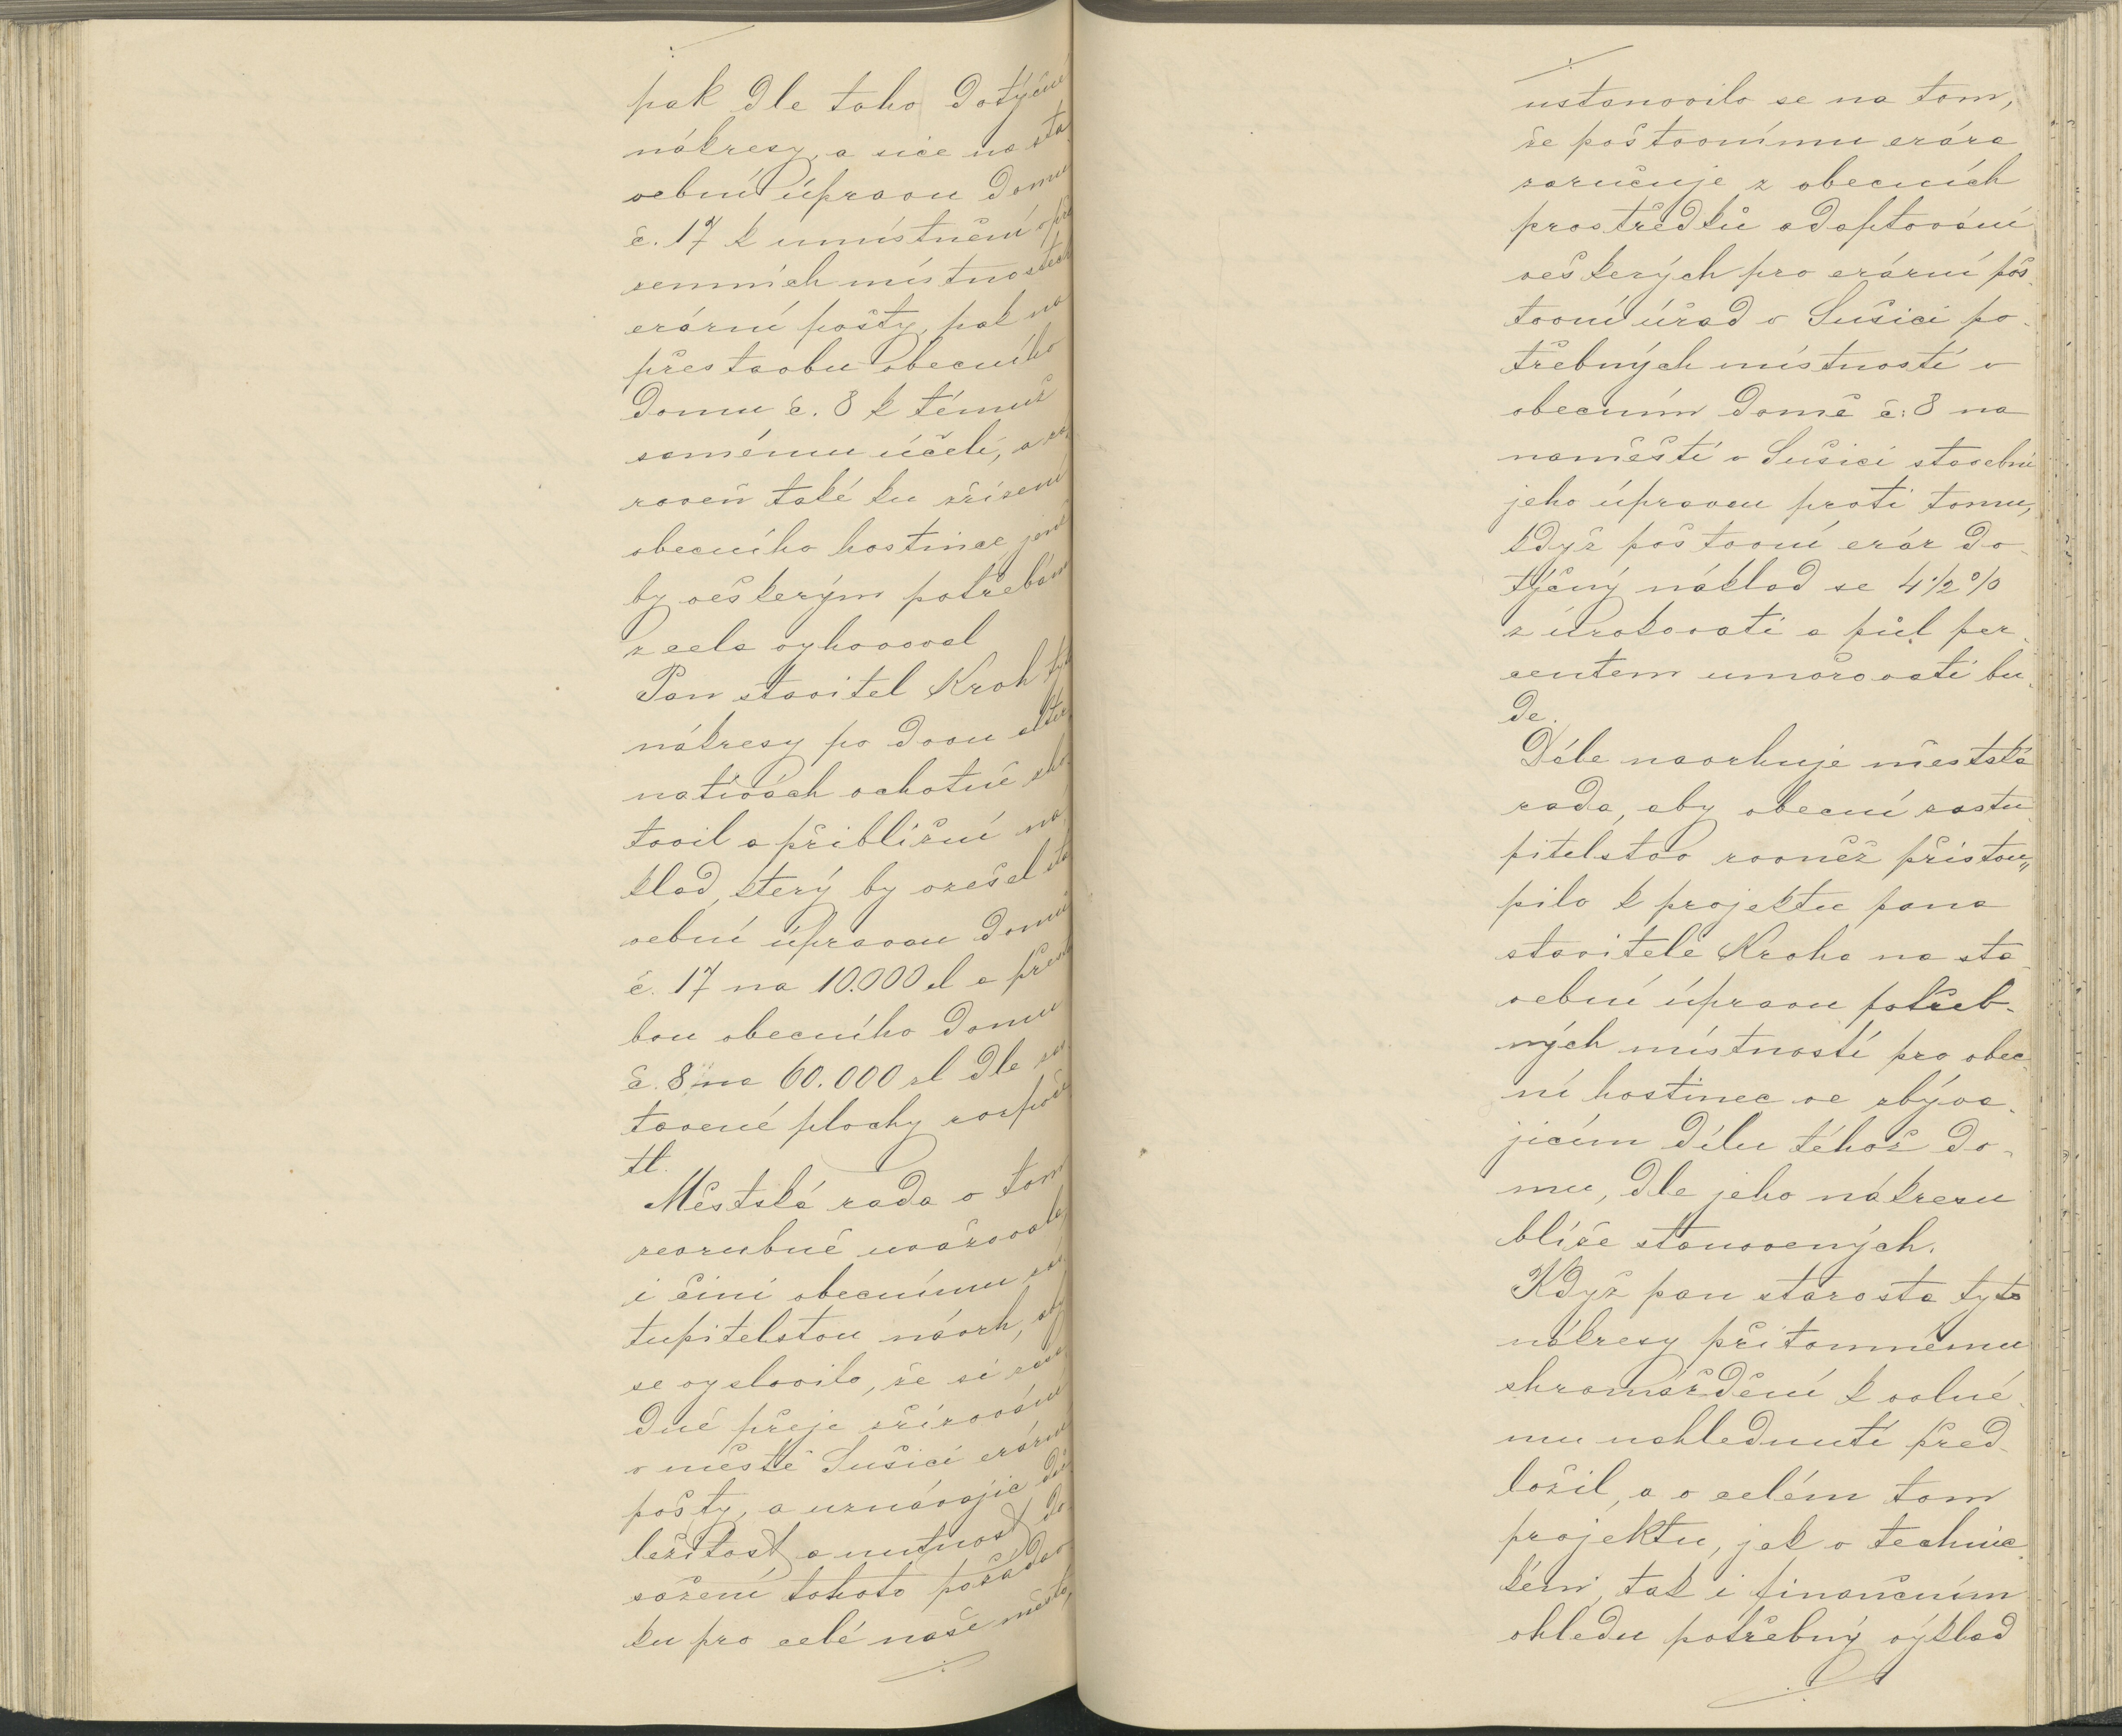 pak dle toho dotyčné
nákresy, a sice na sta
vební úpravu domu
č. 17 k umístnění pří
zemních místnostech
erární pošty, pak na
přestavbu obecního
domu č. 8 k témuž
samému účeli, a zá
roveň také ku zřízení
obecního hostince jenž
by veškerým potřebám
zcela vyhovoval
Pan stavitel Kroh tyto
nákresy po dvou alter
nativách ochotně zho
tovil a přibližní ná
klad, který by vzešel sta
vební úpravou domu
č. 17 na 10.000 zl a přestav
bou obecního domu
č. 8 na 60.000 zl dle zas
tavené plochy rozpoč
tl.
Městská rada o tom
zevrubně uvažovala,
i činí obecnímu zas
tupitelstvu návrh, aby
se vyslovilo, že si zása
dně přeje zřizování
v městě Sušici erární
pošty, a uznávajíc dů
ležitost a nutnost do
sažení tohoto požadav
ku pro celé naše město,
ustanovilo se na tom,
že poštovnímu eráru
zaručuje z obecních
prostředků adaptování
veškerých pro erární poš
tovní úřad v Sušici po-
třebných místností v
obecním domě č: 8 na
naměstí v Sušici stavební
jeho úpravou proti tomu,
když poštovní erár do-
týčný náklad se 4 1/2 %
zúrokovati a půl per-
centem umořovati bu-
de.
Dále navrhuje městská
rada, aby obecní zastu
pitelstvo rovněž přistou„
pilo k projektu pana
stavitele Kroha na sta
vební úpravu potřeb-
ných místností pro obec
ní hostinec ve zbýva-
jícím dílu téhož do-
mu, dle jeho nákresu
blíže stanovených.
Když pan starosta tyto
nákresy přítomnému
shromáždění k volné-
mu nahlednutí před-
ložil, a o celém tom
projektu, jak v technic
kém, tak i finančním
ohledu potřebný výklad